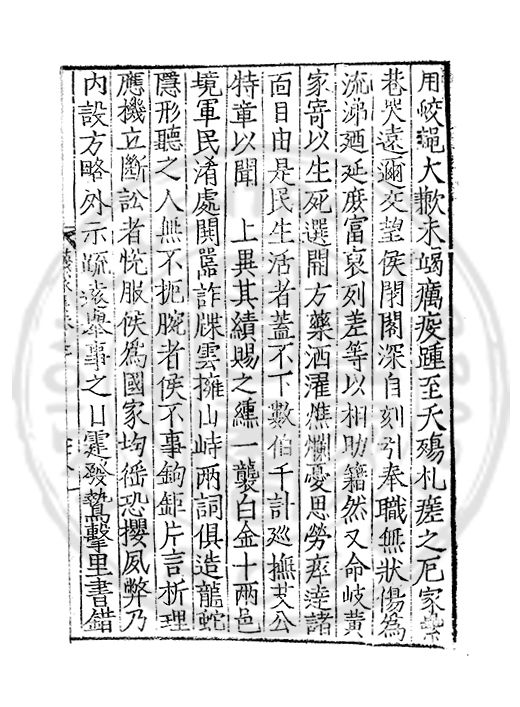 用皎大歉未竭癘疾踵至夭殤札瘥之厄家縈
巷哭遠邇交望侯閉閣深自刻引奉職無狀傷為
流涕廼延富裒列差等以相助籍然又命岐黃
家寄以生死選開方藥洒濯燋爛憂思勞瘁達諸
面目由是民生活者蓋不下數伯千計廵撫艾公
特章以聞　上異其績賜之纁一襲白金十兩邑
境軍民淆處鬨嚚詐牒雲擁山峙兩詞俱造龍蛇
隱形聽之人無不扼腕者侯不事鉤鉅片言析理
應機立斷訟者悅服侯為國家均徭恐攖夙弊乃
內設方略外示疏舉事之日霆發鷙擊里書錯